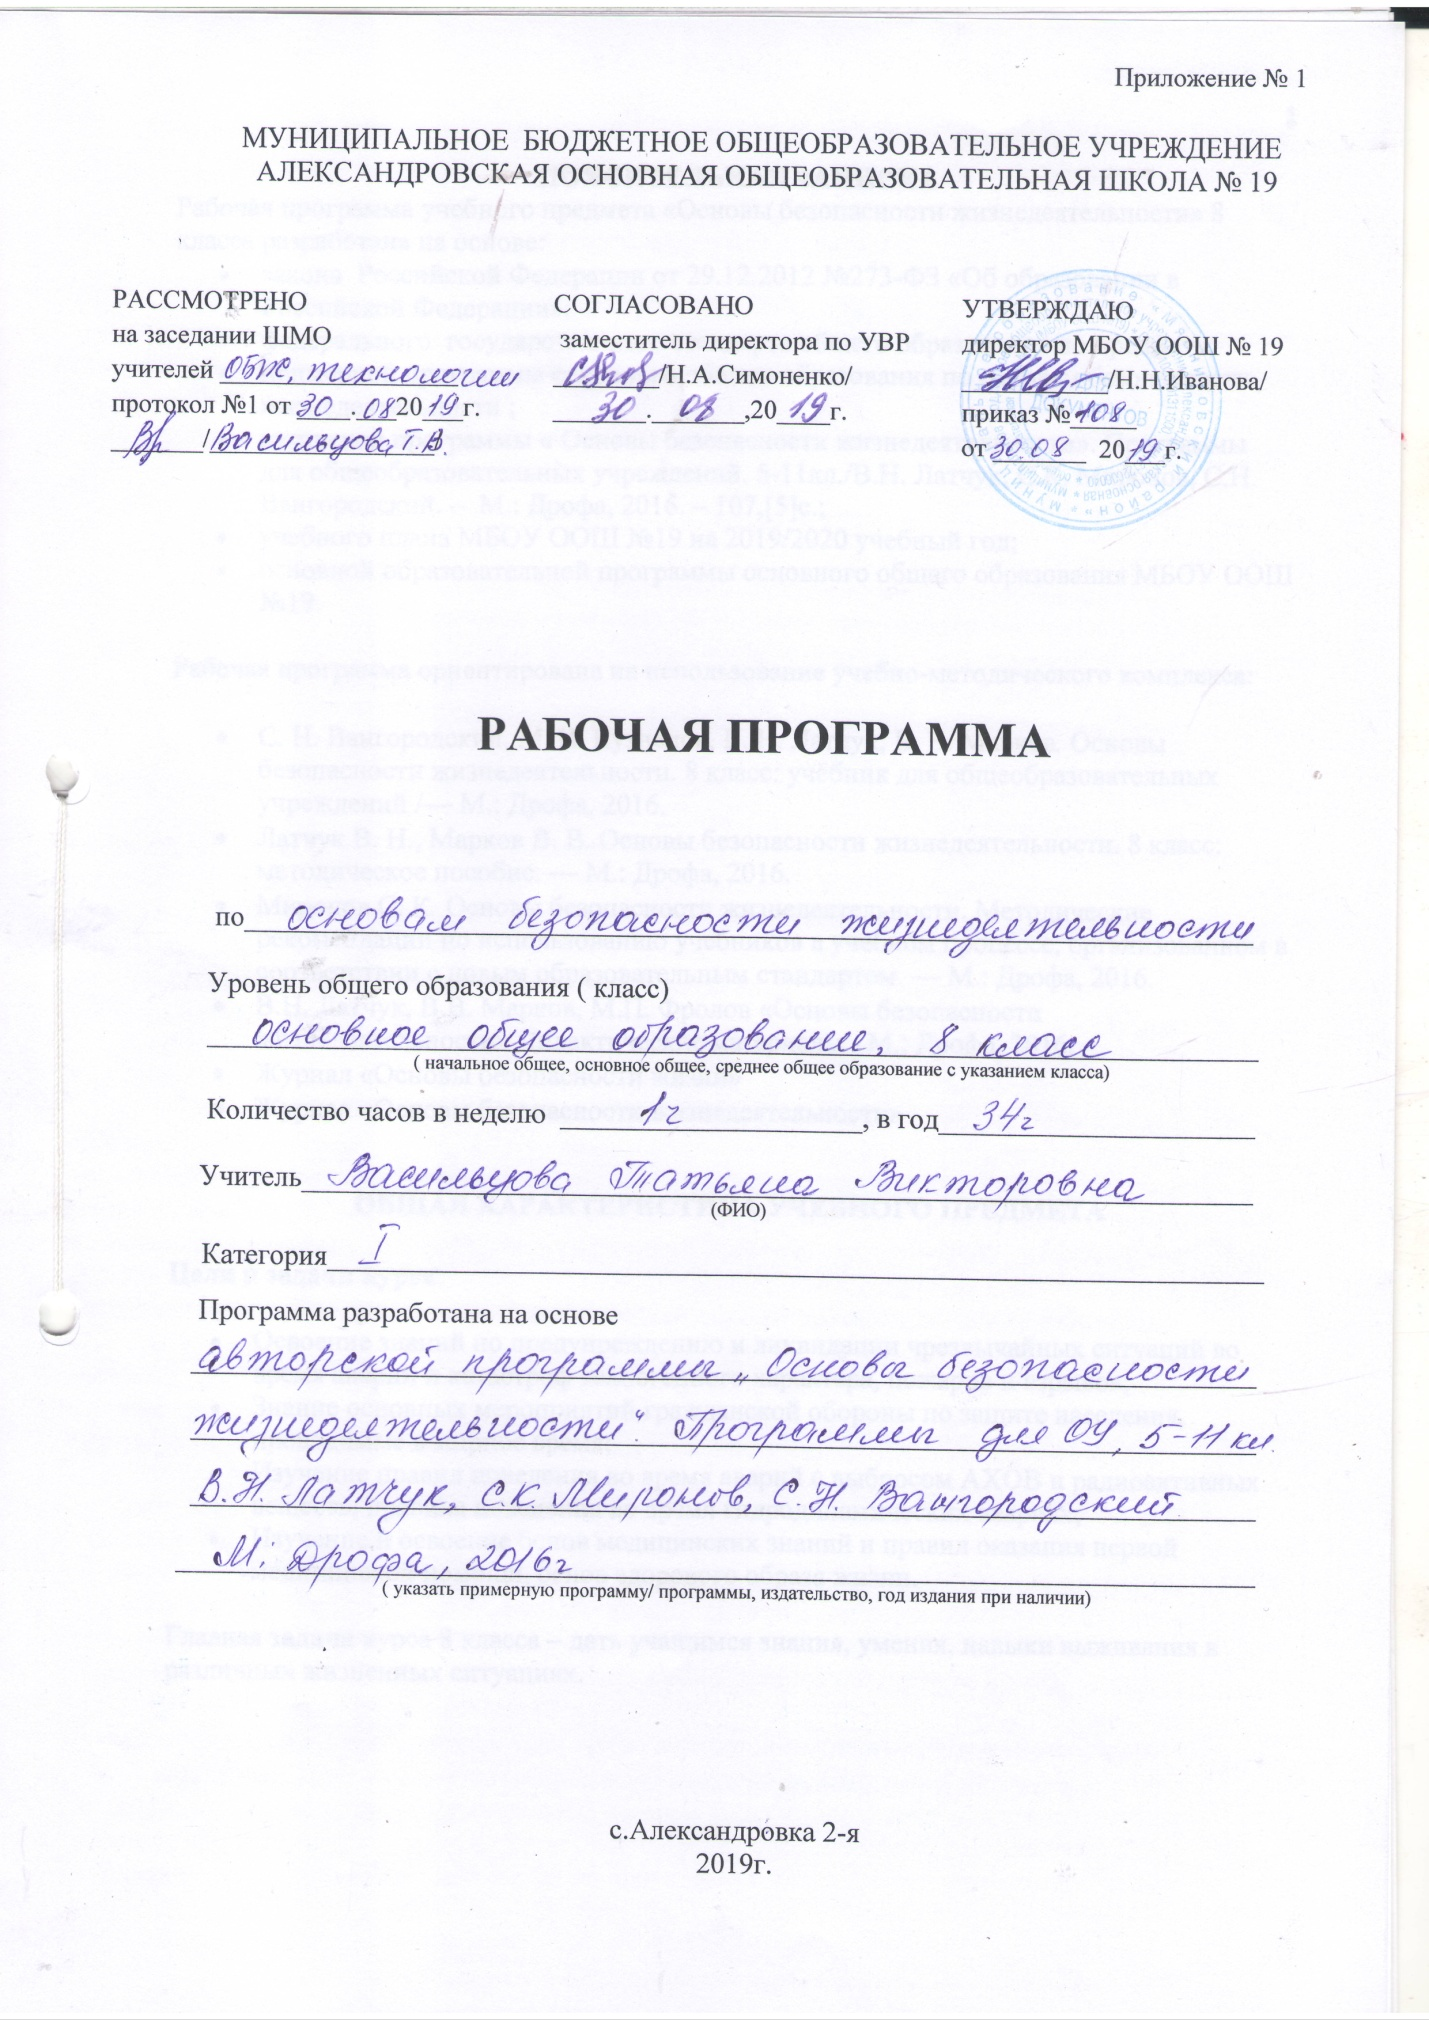 Приложение № 1
МУНИЦИПАЛЬНОЕ БЮДЖЕТНОЕ ОБЩЕОБРАЗОВАТЕЛЬНОЕ УЧРЕЖДЕНИЕ
АЛЕКСАНДРОВСКАЯ ОСНОВНАЯ ОБЩЕОБРАЗОВАТЕЛЬНАЯ ШКОЛА № 19
РАССМОТРЕНО
на заседании ШМО
учителей ОБЖ, технологии
протокол №1 от 30.08 2019 г.
/Васильцова Т.В.
СОГЛАСОВАНО
заместитель директора по УВР
/Н.А.Симоненко/
30. 08 ,2019 г.
УТВЕРЖДАЮ
директор МБОУ ООШ № 19
/Н.Н.Иванова/
приказ № 108
от 30.08 2019 г.
РАБОЧАЯ ПРОГРАММА
по основам безопасности жизнедеятельности
Уровень общего образования ( класс)
основное общее образование, 8 класс
( начальное общее, основное общее, среднее общее образование с указанием класса)
Количество часов в неделю 1ч , в год 34ч
Учитель Васильцова Татьяна Викторовна
(ФИО)
Категория I
Программа разработана на основе
авторской программы „Основы безопасности
жизнедеятельности". Программы для ОУ, 5-11 кл.
В.Н. Латчук, С.К. Миронов, С.Н. Вангородский.
М: Дрофа, 2016г
( указать примерную программу/ программы, издательство, год издания при наличии)
с.Александровка 2-я
2019г.